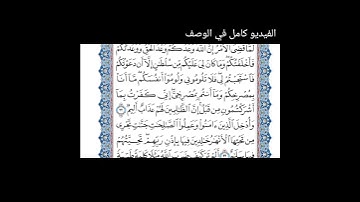 الفيديو كامل في الوصف
لَمَّا قُضِيَ ٱلْأَمْرُ إِنَّ ٱللَّهَ وَعَدَكُمْ وَعْدَ ٱلْحَقِّ وَوَعَدتُّكُمْ
فَأَخْلَفْتُكُمْ وَمَا كَانَ لِيَ عَلَيْكُم مِّن سُلْطَٰنٍ إِلَّآ أَن دَعَوْتُكُمْ
فَٱسْتَجَبْتُمْ لِي فَلَا تَلُومُونِي وَلُومُوٓا۟ أَنفُسَكُم مَّآ أَنَا۠
بِمُصْرِخِكُمْ وَمَآ أَنتُم بِمُصْرِخِيَّ إِنِّي كَفَرْتُ بِمَآ
أَشْرَكْتُمُونِ مِن قَبْلُ إِنَّ ٱلظَّٰلِمِينَ لَهُمْ عَذَابٌ أَلِيمٌ
وَأُدْخِلَ ٱلَّذِينَ ءَامَنُوا۟ وَعَمِلُوا۟ ٱلصَّٰلِحَٰتِ جَنَّٰتٍ تَجْرِي
مِن تَحْتِهَا ٱلْأَنْهَٰرُ خَٰلِدِينَ فِيهَا بِإِذْنِ رَبِّهِمْ تَحِيَّتُهُمْ